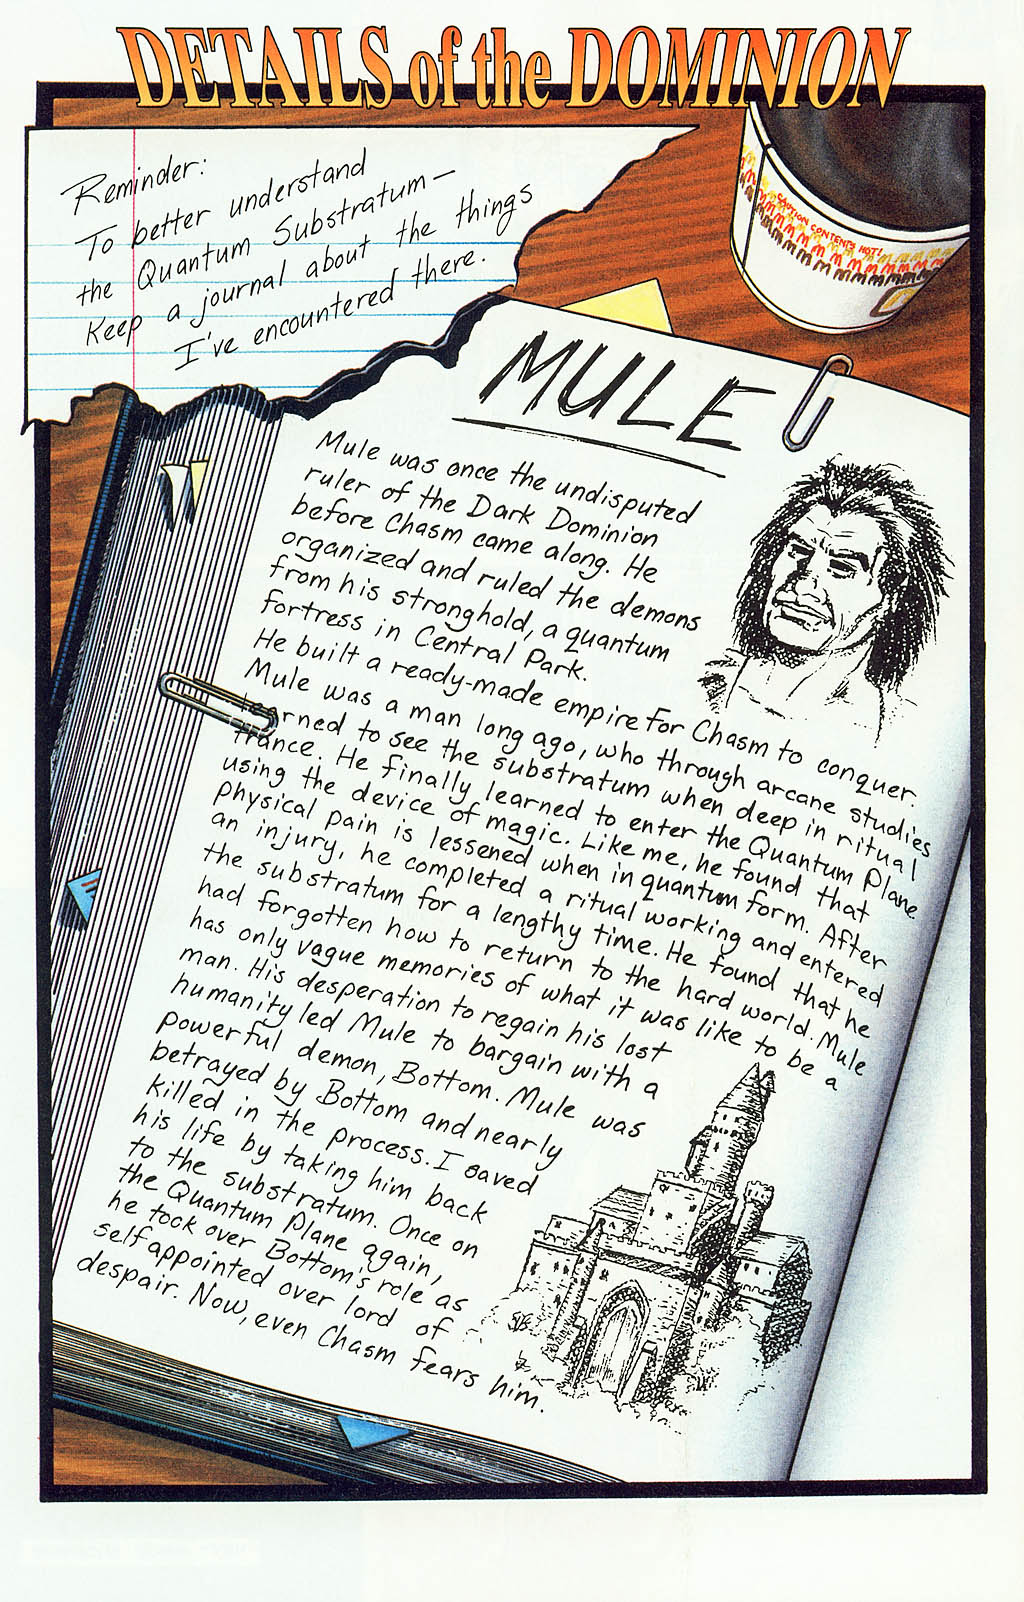 DETAILS of the DOMINION
Reminder:
To better understand
the Quantum Substratum—
Keep a journal about the things
I've encountered there.
CAUTION CONTENTS HOT!
MULE
Mule was once the undisputed
ruler of the Dark Dominion
before Chasm came along. He
organized and ruled the demons
from his stronghold, a quantum
fortress in Central Park.
He built a ready-made empire for Chasm to conquer.
Mule was a man long ago, who through arcane studies
learned to see the substratum when deep in ritual
trance. He finally learned to enter the Quantum Plane
using the device of magic. Like me, he found that
physical pain is lessened when in quantum form. After
an injury, he completed a ritual working and entered
the substratum for a lengthy time. He found that he
had forgotten how to return to the hard world. Mule
has only vague memories of what it was like to be a
man. His desperation to regain his lost
humanity led Mule to bargain with a
powerful demon, Bottom. Mule was
betrayed by Bottom and nearly
killed in the process. I saved
his life by taking him back
to the substratum. Once on
the Quantum Plane again,
he took over Bottom's role as
self appointed over lord of
despair. Now, even Chasm fears him.